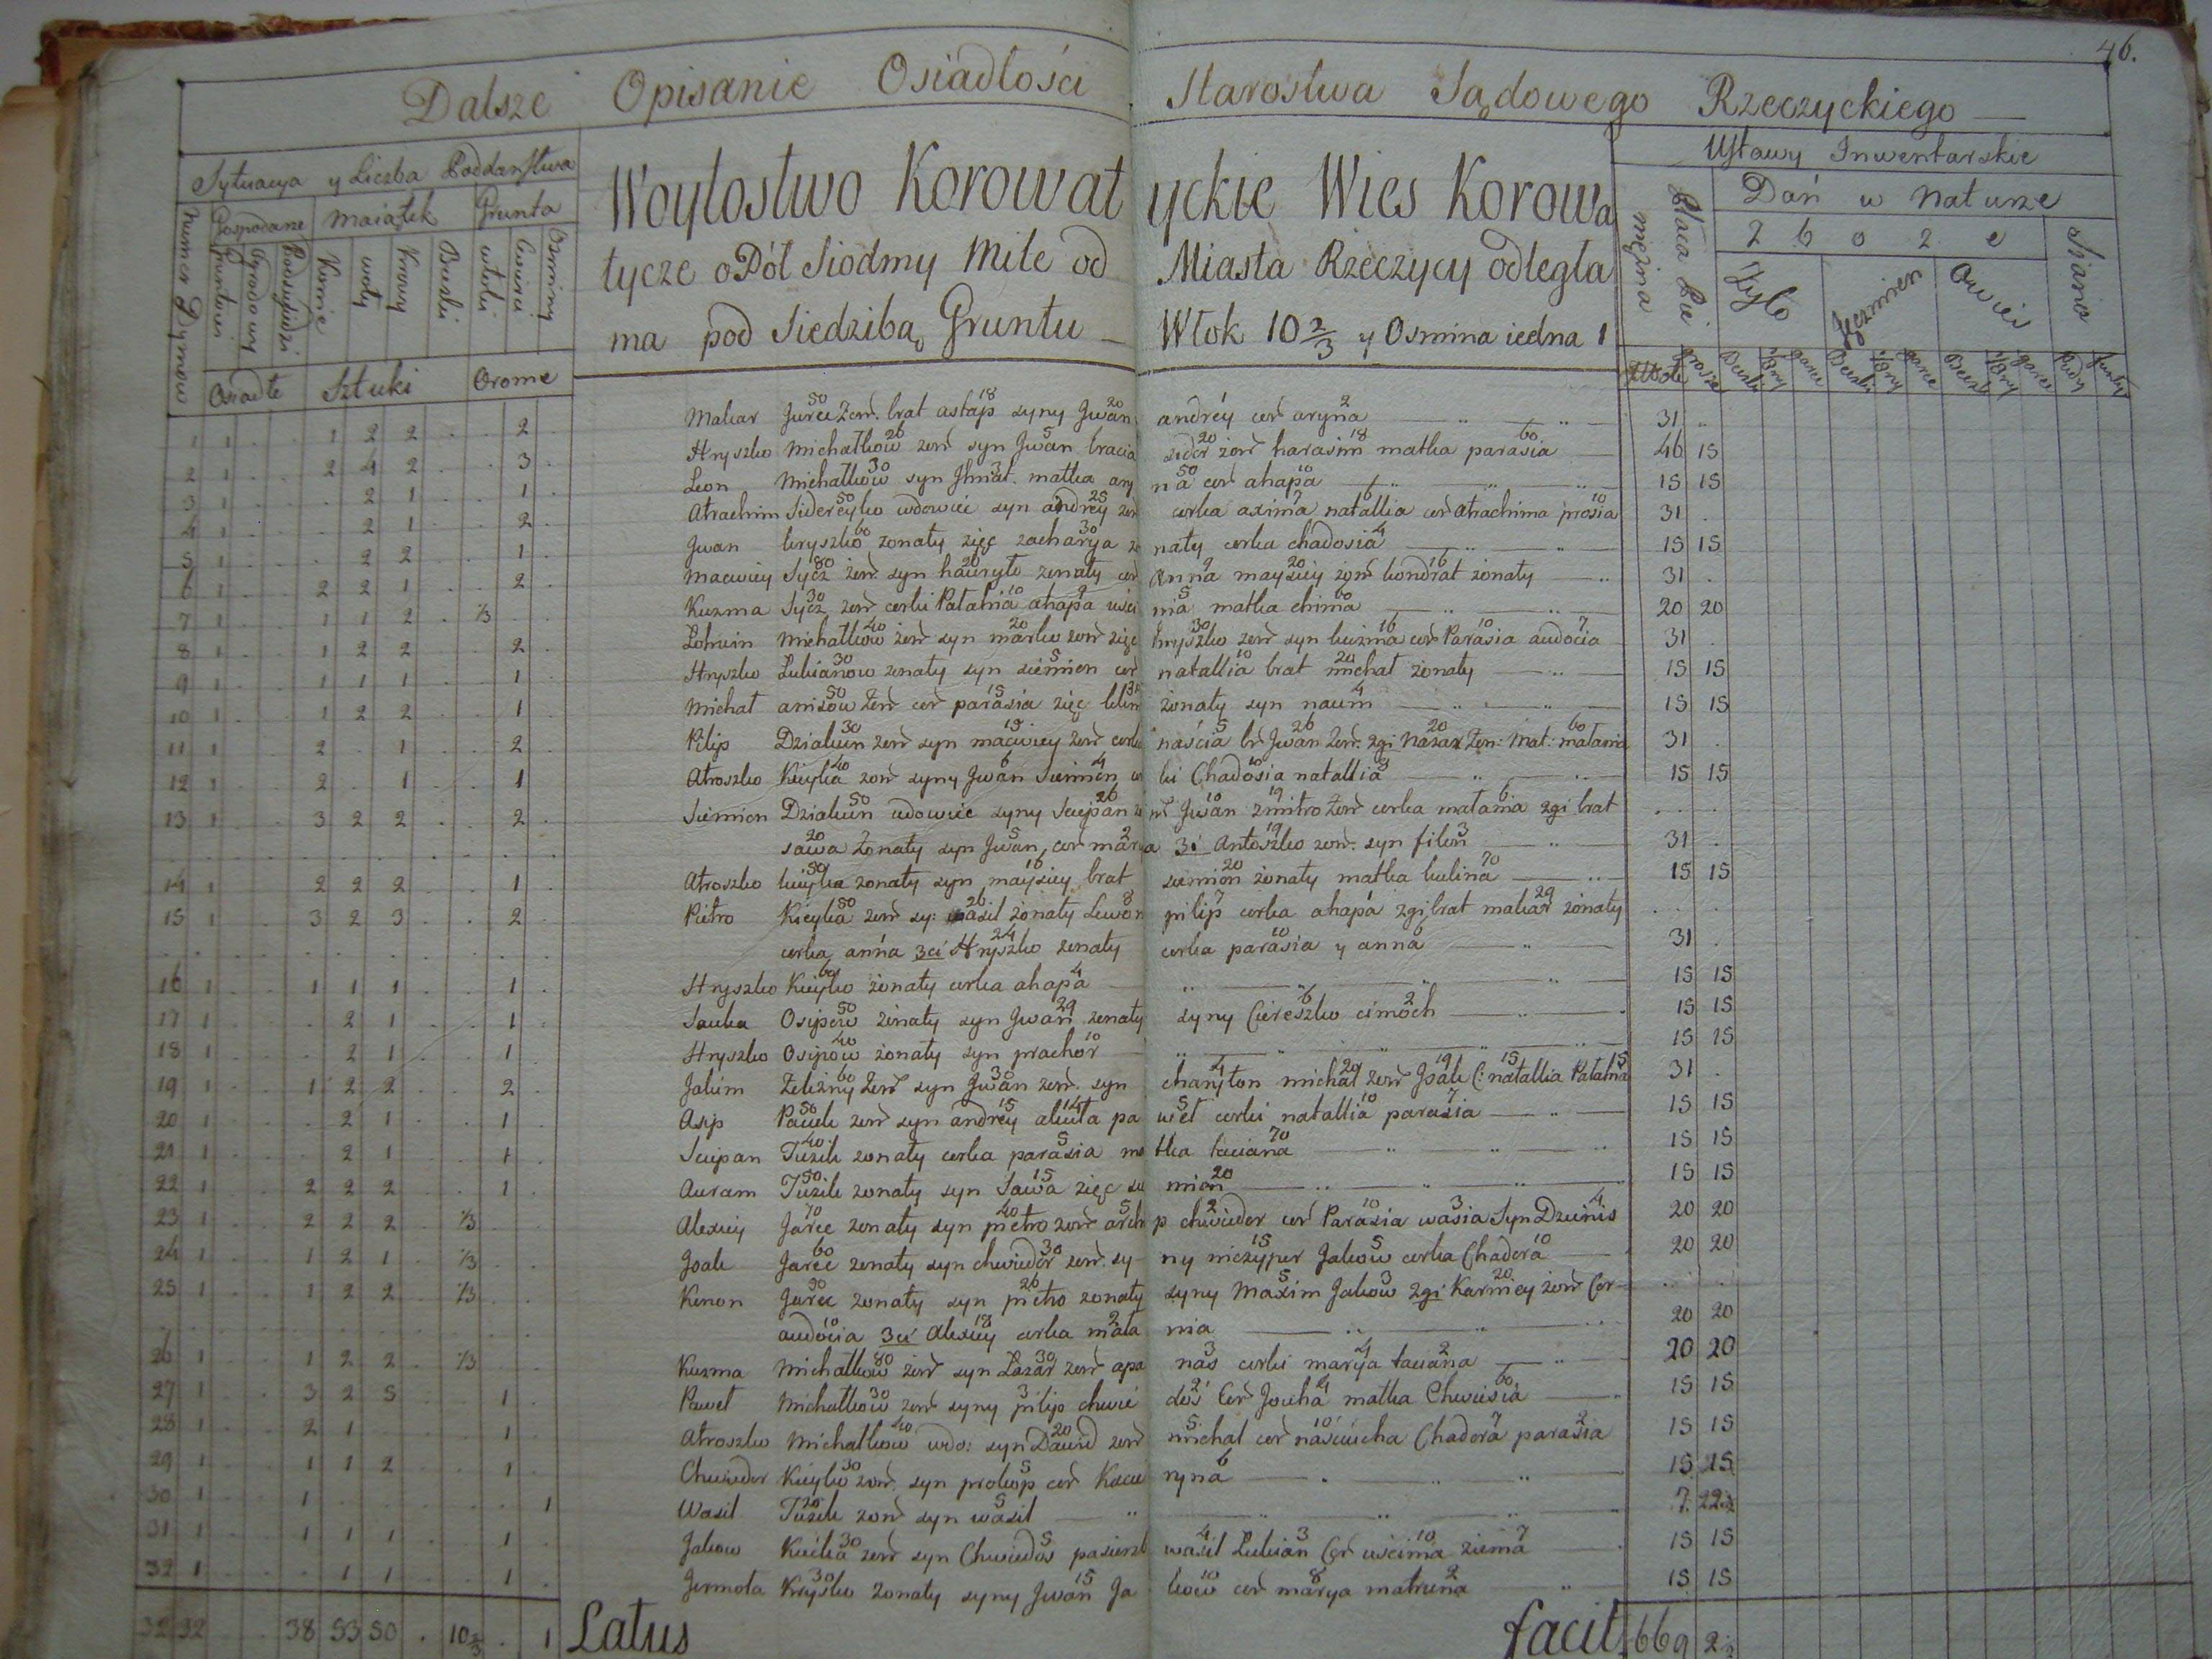 46.
Dalsze Opisanie Osiadłości Starostwa Sądowego Rzeczyckiego
Sytuacya y Liczba Poddaństwa
Ustawy Inwentarskie
Numer Dymow
Gospodarze Maiątek Grunta
Konie woły Krowy
Osiadłe Sztuki Orome
Woytostwo Korowatyckie Wies Korowa
tycze o Pół Siodmy Mile od Miasta Rzeczycy odległa
ma pod Siedzibą Gruntu Włok 10 2/3 y Osmina iedna 1
Dań w Naturze
Zboże Siano
Żyto Jęczmień Owies
1 1 . . 1 2 2 . . 2 . Makar Jurec żon. brat astap 18 syny Jwan 20 andréy cor aryna 2 31 ..
2 1 . . 2 4 2 . . 3 . Hryszko Michałkow żon syn Jwan 5 bracia sidor 20 żon harasim 18 matka parasia 60 46 15
3 1 . . . 2 1 . . 1 . Leon Michałkow 30 syn Jhnat 3 matka aryna 50 cor ahapa 10 15 15
4 1 . . . 2 1 . . 2 . Atrachim Sidereyko 50 wdowiec syn andréy 25 żon corka axima 7 natallia 6 cor atrachima prosia 10 31 .
5 1 . . . 2 2 . . 1 . Jwan hryszko 60 żonaty zięc zacharya 30 żonaty corka chadosia 4 15 15
6 1 . . 2 2 1 . . 2 . Maciciey Sycz 80 żon syn hawryło 20 żonaty cor Anna 9 maysiey 20 żon kondrat 16 żonaty 31 .
7 1 . . 1 1 2 . 1/3 . . Kuzma Sycz 30 żon corki Patahia 10 ahapa 9 uścinia 5 matka chima 60 20 20
8 1 . . 1 2 2 . . 2 . Lohwin Michałkow 40 żon syn marko 20 żon zięc hryszko 30 żon syn kuzma 16 cor Parasia 10 audocia 7 31 .
9 1 . . 1 1 1 . . 1 . Hryszko Lukianow 30 żonaty syn siemion 5 cor natallia 10 brat michał 20 żonaty 15 15
10 1 . . 1 2 2 . . 1 . Michał anisow 50 żon cor parasia 15 zięc żonaty syn naum 4 15 15
11 1 . . 2 . 1 . . 2 . Pilip Dziakun 30 żon syn maciciey 19 żon corka naścia 5 br Jwan 26 żon. 2gi Nazar 20 żon: mat: matania 60 31 .
12 1 . . 2 . 1 . . 1 . Atroszko Kieyka 40 żon syny Jwan 6 Siemion 4 corki Chadosia 10 natallia 3 15 15
13 1 . . 3 2 2 . . 2 . Siemion Dziakun 50 wdowiec syny Sciepan 26 żon Jwan 10 zmitro 19 żon corka matania 6 2gi brat
sawa 20 żonaty syn Jwan 5 cor marya 2 3ci Antoszko 19 żon. syn filon 3 31 .
14 1 . . 2 2 2 . . 1 . Atroszko kieyka 30 żonaty syn maysiey 16 brat siemion 20 żonaty matka kulina 70 15 15
15 1 . . 3 2 3 . . 2 . Pietro Kieyka 50 żon sy: wasil 26 żonaty Lewon 8 pilip 7 corka ahapa 2gi brat makar 29 żonaty
corka anna 3ci Hryszko 24 żonaty corka parasia 10 y anna 6 31 .
16 1 . . 1 1 1 . . 1 . Hryszko Kieyko 60 żonaty corka ahapa 4 15 15
17 1 . . . 2 1 . . 1 . Sauka Osipow 50 żonaty syn Jwan 29 żonaty syny Ciereszko 6 cimoch 2 15 15
18 1 . . . 2 1 . . 1 . Hryszko Osipow 40 żonaty syn prachor 10 15 15
19 1 . . 1 2 2 . . 2 . Jakim Żelizny 60 żon syn Jwan 30 żon. syn charyton 4 michał 20 żon Jsak 19 C: natallia 15 Patahia 15 31 .
20 1 . . . 2 1 . . 1 . Asip Pauk 50 żon syn andréy 15 akuta 14 paweł 5 corki natallia 10 parasia 7 15 15
21 1 . . . 2 1 . . 1 . Sciepan Tuzik 40 żonaty corka parasia 5 matka taciana 70 15 15
22 1 . . 2 2 2 . . 1 . Auram Tuzik 50 żonaty syn Sawa 15 zięc siemion 20 15 15
23 1 . . 2 2 2 . 1/3 . . Alexiey Jarec 70 żonaty syn pietro 40 żon archip 5 chwiedor 2 cor Parasia 10 wasia 3 Syn Dzienis 4 20 20
24 1 . . 1 2 1 . 1/3 . . Jsak Jarec 60 żonaty syn chwiedor 30 żon. syny niczyper 15 Jakow 5 corka Chadora 10 20 20
25 1 . . 1 2 2 . 1/3 . . Kenon Jarec 90 żonaty syn pietro 26 żonaty syny Maxim 5 Jakow 3 2gi Karniey 20 żon Cor
audocia 10 3ci Alexiey 18 corka matania 2 20 20
26 1 . . 1 2 2 . 1/3 . . Kuzma Michałkow 80 żon syn Łazar 30 żon apanas 3 corki marya 4 taciana 2 20 20
27 1 . . 3 2 5 . . 1 . Paweł Michałkow 30 żon syny pilip 3 chwiedos 2 Cor Jouha 4 matka Chwiesia 60 15 15
28 1 . . 2 1 . . . 1 . Atroszko Michałkow 40 wdo: syn Dawid 20 żon michał 5 cor naściucha 10 Chadora 7 parasia 2 15 15
29 1 . . 1 1 2 . . 1 . Chwiedor Kieyko 30 żon. syn prokop 5 cor Kacieryna 6 15 15
30 1 . . 1 . . . . . 1 Wasil Tuzik 20 żon syn wasil 5 7 22½
31 1 . . 1 1 1 . . 1 . Jakow Kieika 30 żon syn Chwiedos 5 pasierb wasil 4 Lukian 3 Cor uscima 10 zienia 7 15 15
32 1 . . . 1 1 . . 1 . Jermoła Kryśko 30 żonaty syny Jwan 15 Jakow 10 cor marya 8 matruna 2 15 15
32 32 . . 38 53 50 . 10 2/3 . 1 Latus facit 669 2½